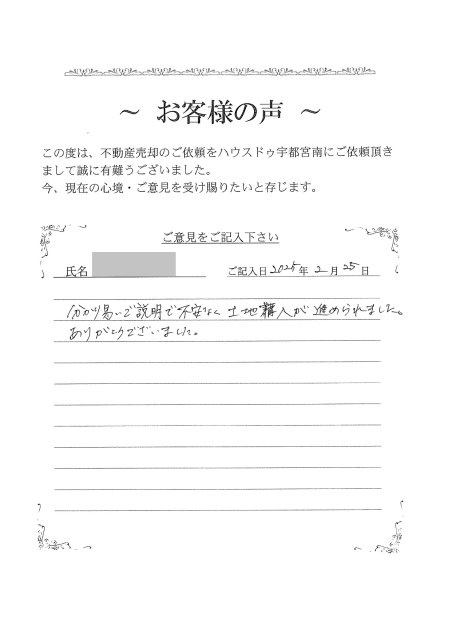 ～ お客様の声 ～
この度は、不動産売却のご依頼をハウスドゥ宇都宮南にご依頼頂き
まして誠に有難うございました。
今、現在の心境・ご意見を受け賜りたいと存じます。
ご意見をご記入下さい
氏名 ご記入日 2025 年 2 月 25 日
分かり易いご説明で不安なく土地購入が進められました。
ありがとうございました。